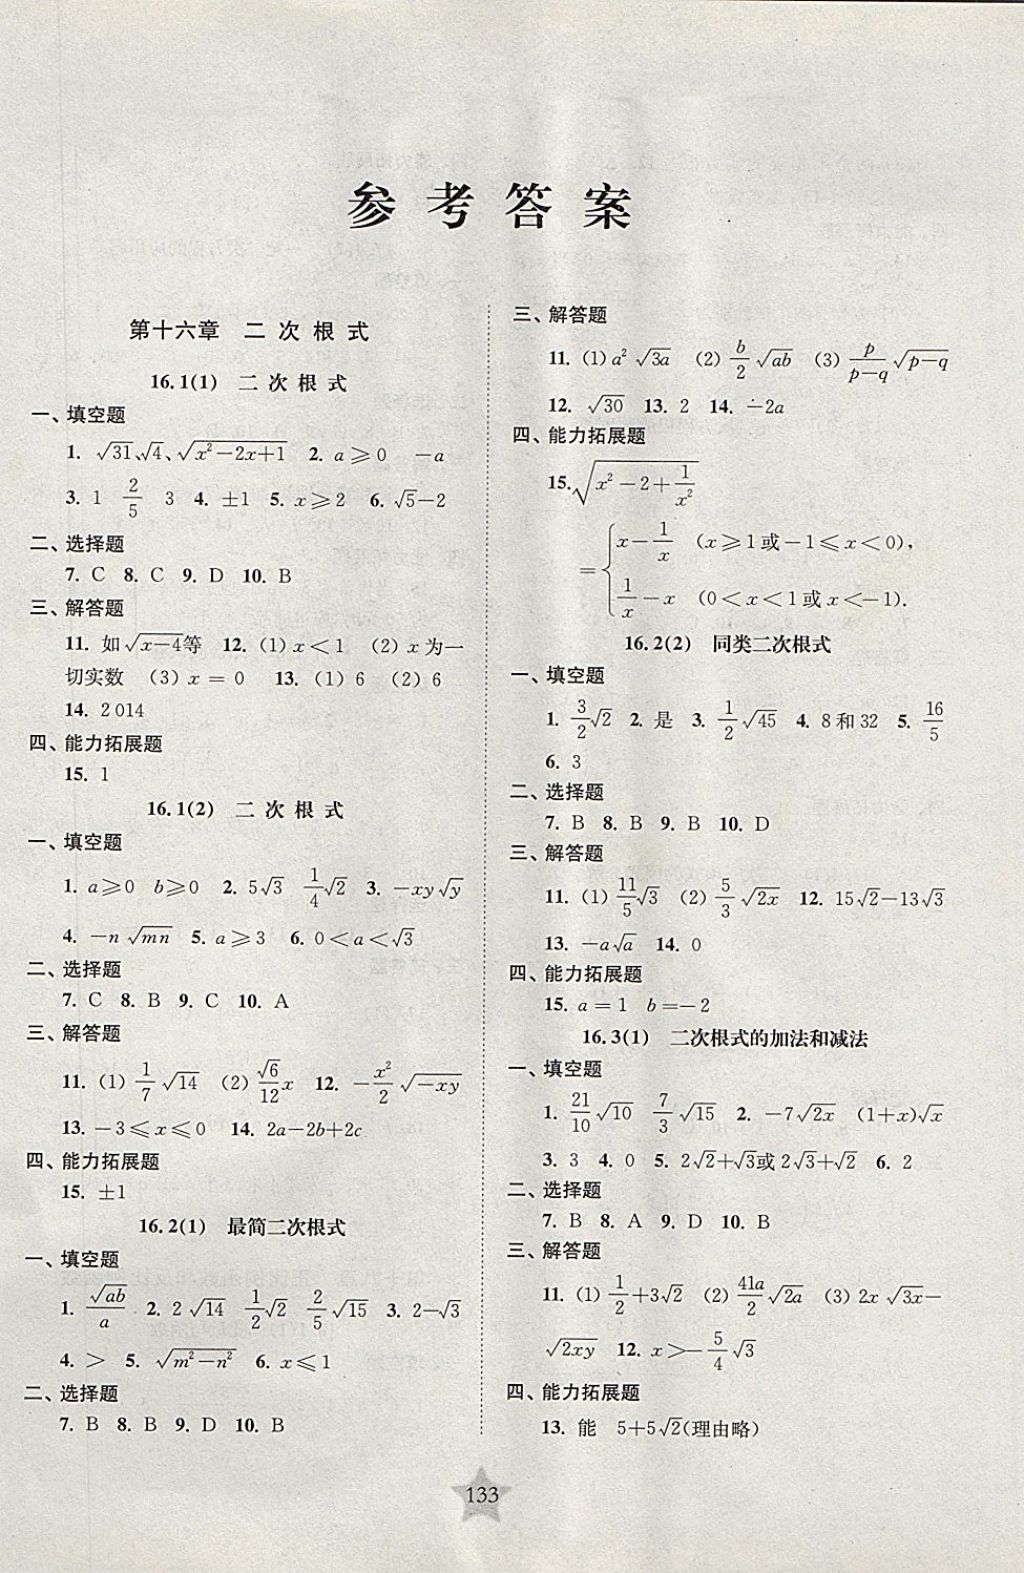 参考答案
第十六章 二次根式
16.1(1) 二次根式
一、填空题
1. √31、√4、√(x²-2x+1) 2. a≥0 -a
3. 1 2/5 3 4. ±1 5. x≥2 6. √5-2
二、选择题
7. C 8. C 9. D 10. B
三、解答题
11. 如√(x-4)等 12. (1) x<1 (2) x为一
切实数 (3) x=0 13. (1) 6 (2) 6
14. 2 014
四、能力拓展题
15. 1
16.1(2) 二次根式
一、填空题
1. a≥0 b≥0 2. 5√3 1/4√2 3. -xy√y
4. -n√(mn) 5. a≥3 6. 0<a<√3
二、选择题
7. C 8. B 9. C 10. A
三、解答题
11. (1) 1/7√14 (2) √6/12x 12. -x²/2√(-xy)
13. -3≤x≤0 14. 2a-2b+2c
四、能力拓展题
15. ±1
16.2(1) 最简二次根式
一、填空题
1. √(ab)/a 2. 2√14 1/2√2 2/5√15 3. 2-√3
4. > 5. √(m²-n²) 6. x≤1
二、选择题
7. B 8. B 9. D 10. B
三、解答题
11. (1) a²√(3a) (2) b/2√(ab) (3) p/(p-q)√(p-q)
12. √30 13. 2 14. -2a
四、能力拓展题
15. √(x²-2+1/x²)
={x-1/x (x≥1或-1≤x<0),
1/x-x (0<x<1或x<-1).
16.2(2) 同类二次根式
一、填空题
1. 3/2√2 2. 是 3. 1/2√45 4. 8和32 5. 16/5
6. 3
二、选择题
7. B 8. B 9. B 10. D
三、解答题
11. (1) 11/5√3 (2) 5/3√(2x) 12. 15√2-13√3
13. -a√a 14. 0
四、能力拓展题
15. a=1 b=-2
16.3(1) 二次根式的加法和减法
一、填空题
1. 21/10√10 7/3√15 2. -7√(2x) (1+x)√x
3. 3 4. 0 5. 2√2+√3或2√3+√2 6. 2
二、选择题
7. B 8. A 9. D 10. B
三、解答题
11. (1) 1/2+3√2 (2) 41a/2√(2a) (3) 2x√(3x)-
√(2xy) 12. x>-5/4√3
四、能力拓展题
13. 能 5+5√2(理由略)
133